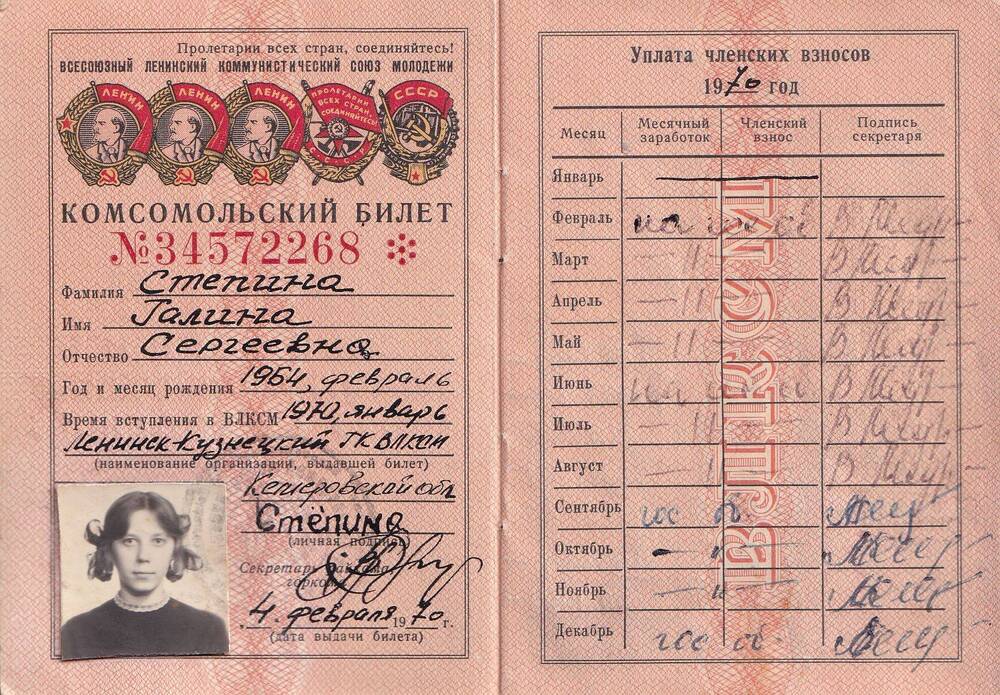 Пролетарии всех стран, соединяйтесь!
ВСЕСОЮЗНЫЙ ЛЕНИНСКИЙ КОММУНИСТИЧЕСКИЙ СОЮЗ МОЛОДЕЖИ
ЛЕНИН ЛЕНИН ЛЕНИН ПРОЛЕТАРИИ ВСЕХ СТРАН, СОЕДИНЯЙТЕСЬ! СССР
КОМСОМОЛЬСКИЙ БИЛЕТ
№34572268
Фамилия Степина
Имя Галина
Отчество Сергеевна
Год и месяц рождения 1954, февраль
Время вступления в ВЛКСМ 1970, январь
Ленинск-Кузнецкий ГК ВЛКСМ
(наименование организации, выдавшей билет)
Кемеровской обл
Стёпина
(личная подпись)
Секретарь райкома
горкома
4 февраля 1970 г.
(дата выдачи билета)
Уплата членских взносов
1970 год
Месяц Месячный заработок Членский взнос Подпись секретаря
Январь —
Февраль
Март — 11 —
Апрель — 11 —
Май — 11 —
Июнь
Июль — 11 —
Август — 11 —
Сентябрь
Октябрь — " —
Ноябрь — " —
Декабрь
ВЛКСМ